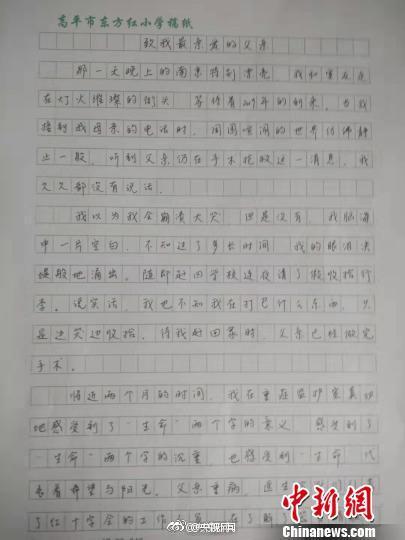 高平市东方红小学稿纸
致我最亲爱的父亲
那一天晚上的南京特别漂亮 我和室友走
在灯火璀璨的街头 等待着2019年的到来。当我
接到我母亲的电话时,周围喧闹的世界仿佛静
止一般。听到父亲仍在手术抢救这一消息,我
久久都没有说话。
我以为我会崩溃大哭 但是没有。我脑海
中一片空白,不知过了多长时间 我的眼泪决
堤般地涌出。随即赶回学校连夜请了假收拾行
李。说实话,我也不知我在打包什么东西,只
是边哭边收拾。待我赶回家时,父亲已经做完
手术。
将近两个月的时间,我在重症监护室真切
地感受到了“生命”两个字的意义 感受到了
“生命”两个字的沉重,也感受到“生命”代
表着希望与阳光。父亲重病,医生
了红十字会的工作 在了
中新网
@央视新闻